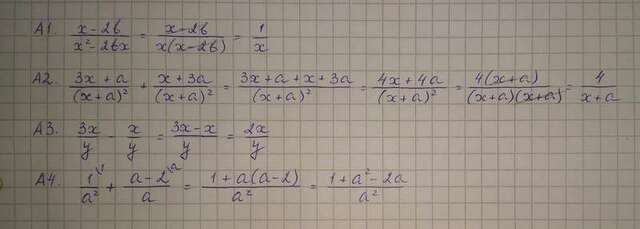 А1. (x-2в)/(x²-2вx) = (x-2в)/(x(x-2в)) = 1/x
А2. (3x+a)/(x+a)² + (x+3a)/(x+a)² = (3x+a+x+3a)/(x+a)² = (4x+4a)/(x+a)² = 4(x+a)/((x+a)(x+a)) = 4/(x+a)
А3. 3x/y - x/y = (3x-x)/y = 2x/y
А4. 1\¹/a² + (a-2\ᵃ)/a = (1+a(a-2))/a² = (1+a²-2a)/a²